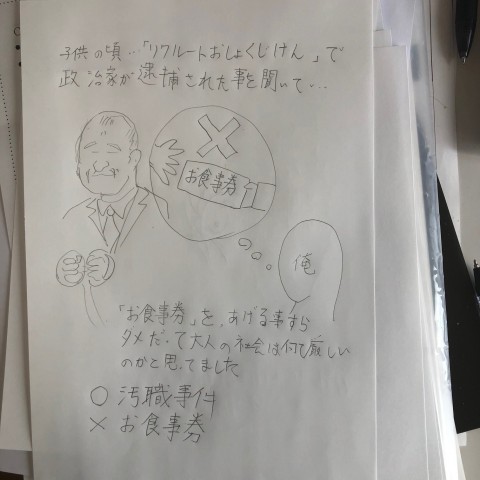 子供の頃…「リクルートおしょくじけん」で
政治家が逮捕された事を聞いて…
×
お食事券
俺
「お食事券」を、あげる事すら
ダメだって大人の社会は何て厳しい
のかと思ってました
○ 汚職事件
× お食事券